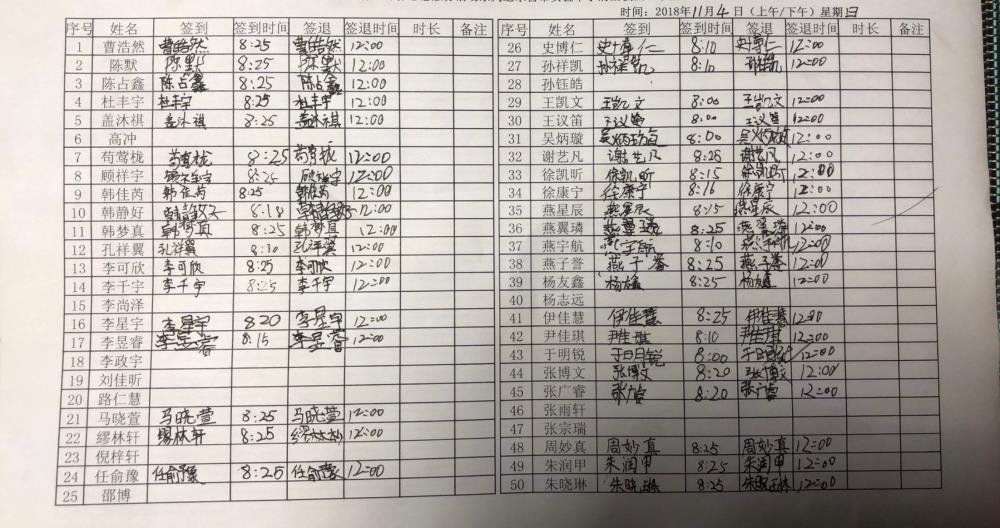 时间：2018年11月4日（上午/下午）星期日
序号 姓名 签到 签到时间 签退 签退时间 时长 备注
1 曹浩然 曹浩然 8:25 曹浩然 12:00
2 陈默 陈默 8:25 陈默 12:00
3 陈占鑫 陈占鑫 8:25 陈占鑫 12:00
4 杜丰宇 杜丰宇 8:25 杜丰宇 12:00
5 盖沐祺 盖沐祺 8:25 盖沐祺 12:00
6 高冲
7 荀莺栊 8:25 12:00
8 顾祥宇 8:25 顾祥宇 12:00
9 韩佳芮 韩佳芮 8:25 韩佳芮 12:00
10 韩静好 韩静好 8:18 12:00
11 韩梦真 韩梦真 8:25 韩梦真 12:00
12 孔祥翼 孔祥翼 8:20 孔祥翼 12:00
13 李可欣 李可欣 8:25 李可欣 12:00
14 李千宇 李千宇 8:25 李千宇 12:00
15 李尚泽
16 李星宇 李星宇 820 李星宇 12:00
17 李昱睿 李昱睿 8:15 李昱睿 12:00
18 李政宇
19 刘佳昕
20 路仁慧
21 马晓萱 马晓萱 8:25 马晓萱 12:00
22 缪林轩 缪林轩 8:25 12:00
23 倪梓轩
24 任俞豫 任俞豫 8:20 任俞豫 12:00
25 邵博
序号 姓名 签到 签到时间 签退 签退时间 时长 备注
26 史博仁 史博仁 8:10 史博仁 12:00
27 孙祥凯 孙祥凯 8:10 孙祥凯 12:00
28 孙钰皓
29 王凯文 王凯文 8:00 王凯文 12:00
30 王议笛 王议笛 8:00 王议笛 12:00
31 吴炳璇 8:00 12:00
32 谢艺凡 谢艺凡 8:25 谢艺凡 12:00
33 徐凯昕 徐凯昕 8:15 徐凯昕 12:00
34 徐康宁 徐康宁 8:16 徐康宁 12:00
35 燕星辰 燕星辰 8:15 燕星辰 12:00
36 燕翼璘 8:25 12:00
37 燕宇航 燕宇航 8:10 12:00
38 燕子誉 燕子誉 8:25 燕子誉 12:00
39 杨友鑫 杨友鑫 8:25 杨友鑫 12:00
40 杨志远
41 伊佳慧 伊佳慧 8:25 伊佳慧
42 尹佳琪 尹佳琪 8:10 尹佳琪 12:00
43 于明锐 于明锐 8:00 12:00
44 张博文 张博文 8:20 张博文 12:00
45 张广睿 8:20 12:00
46 张雨轩
47 张宗瑞
48 周妙真 周妙真 8:25 周妙真 12:00
49 朱润甲 朱润甲 8:25 朱润甲 12:00
50 朱晓琳 朱晓琳 8:25 朱晓琳 12:00